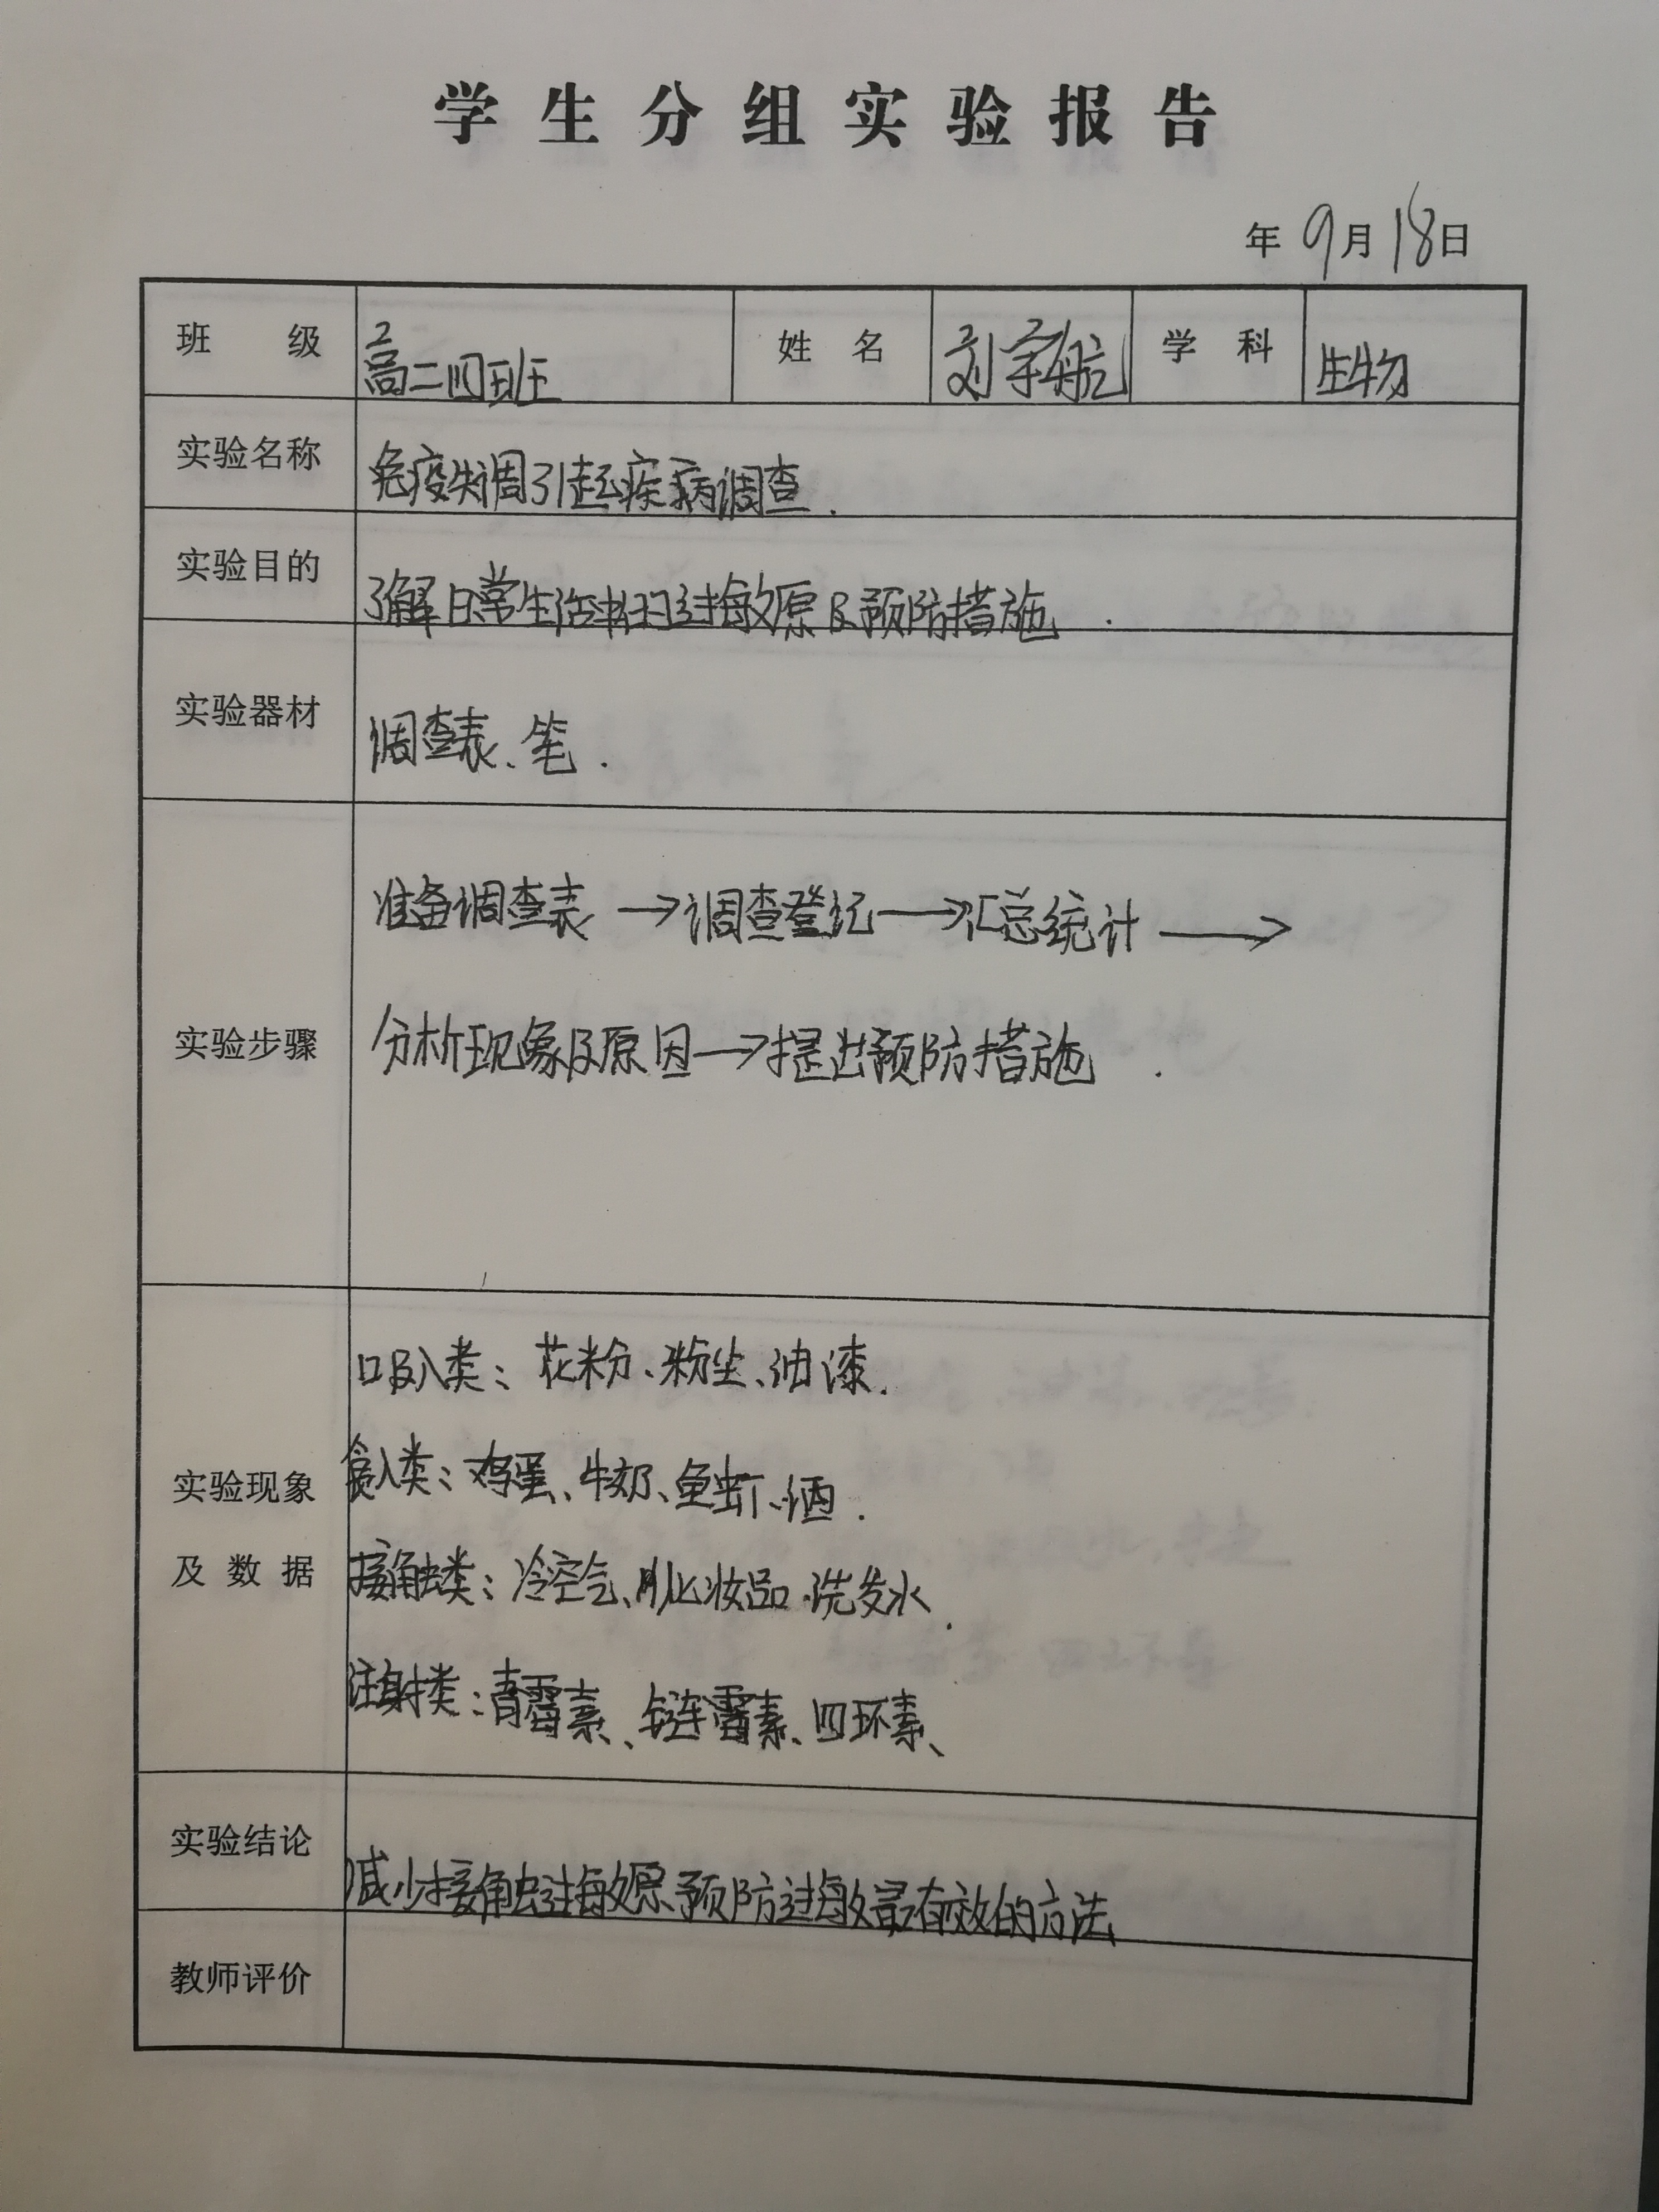 学生分组实验报告
年 9月18日
班 级 高二四班 姓 名 刘宇航 学 科 生物
实验名称 免疫失调引起疾病调查.
实验目的 了解日常生活中的过敏原及预防措施.
实验器材 调查表、笔.
实验步骤
准备调查表→调查登记→汇总统计→
分析现象及原因→提出预防措施.
实验现象
及 数 据
吸入类：花粉、粉尘、油漆.
食入类：鸡蛋、牛奶、鱼虾、酒.
接触类：冷空气、化妆品、洗发水.
注射类：青霉素、链霉素、四环素、
实验结论 减少接触过敏原预防过敏最有效的方法
教师评价